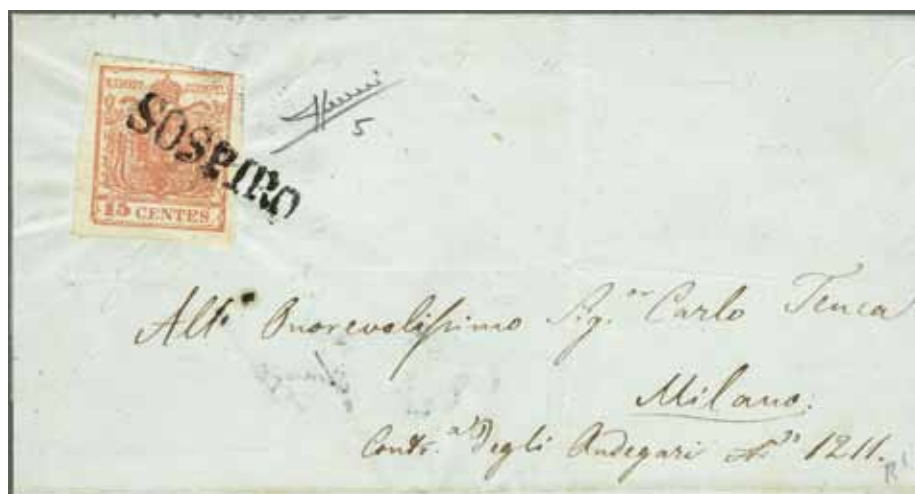 SOSPIRO
15 CENTES
5
All' Onorevolissimo Sig.or Carlo Tenca
Milano.
Contr.a Degli Andegari N.o 1211.